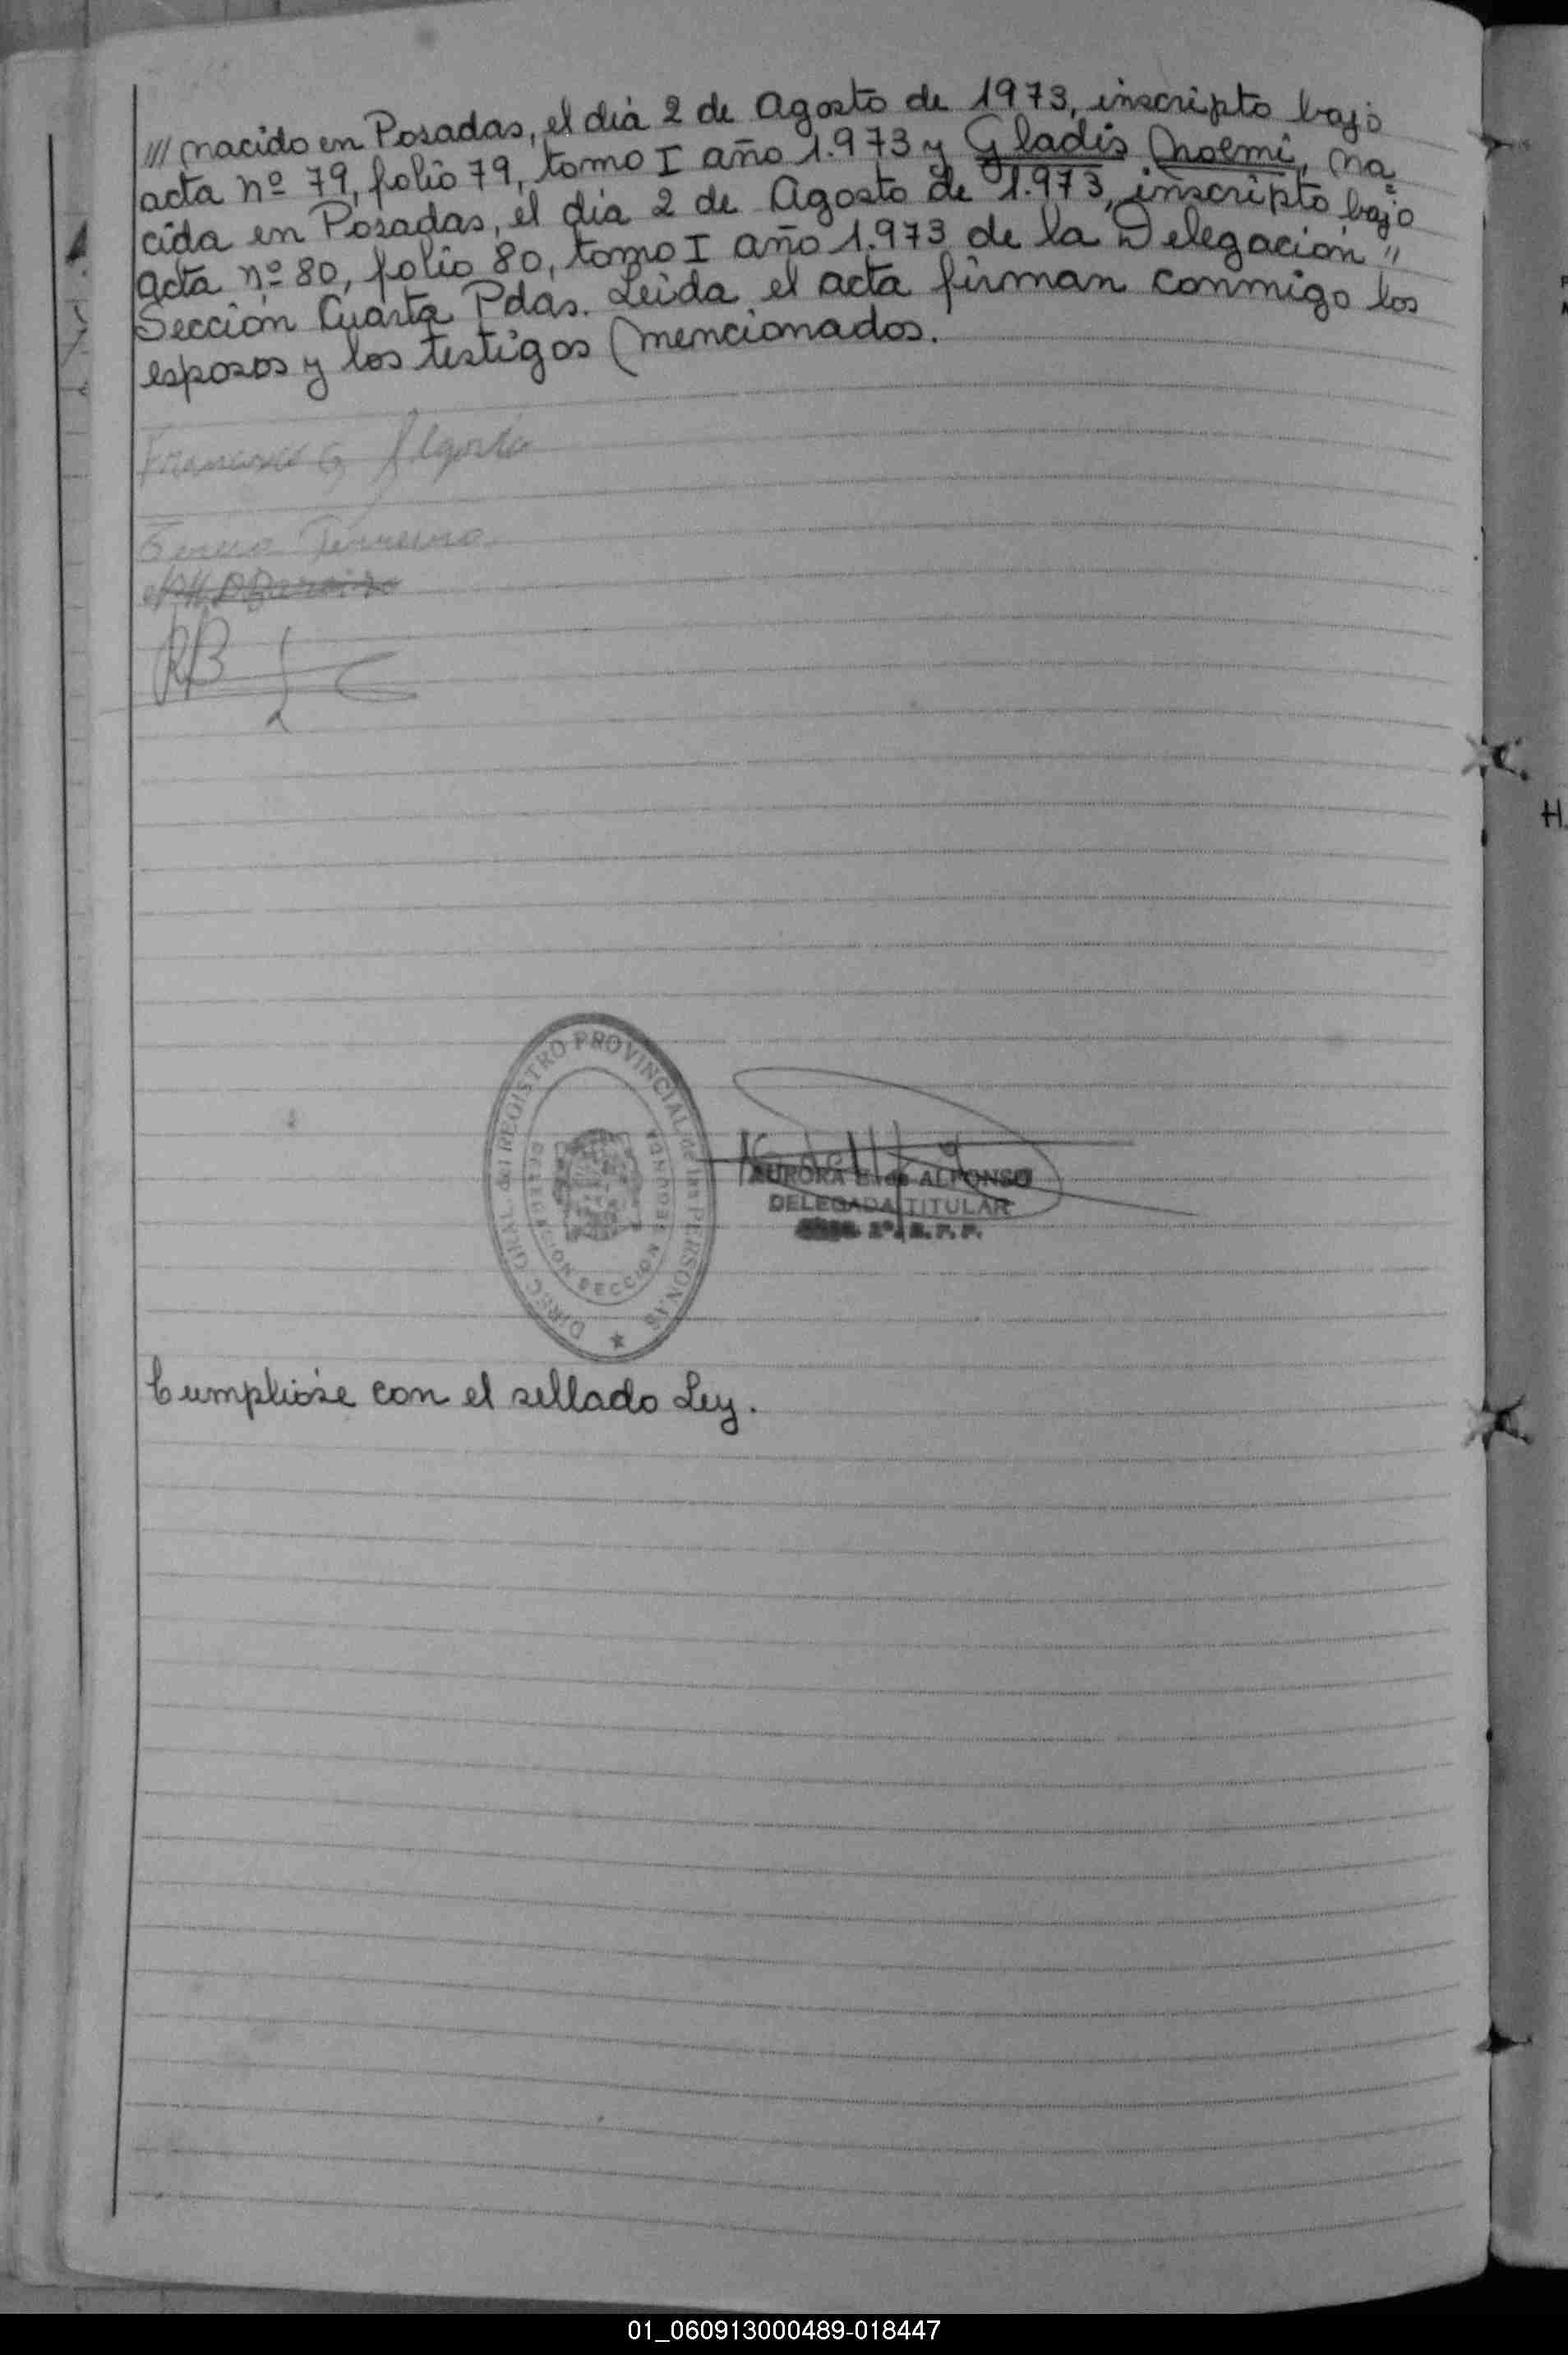 /// nacido en Posadas, el día 2 de Agosto de 1973, inscripto bajo
acta nº 79, folio 79, tomo I año 1.973 y Gladis Noemi, na=
cida en Posadas, el dia 2 de Agosto de 1.973, inscripto bajo
acta nº 80, folio 80, tomo I año 1.973 de la Delegación "
Sección Cuarta Pdas. Leida el acta firman conmigo los
esposos y los testigos mencionados.
Francisco G
DIREC. GRAL. del REGISTRO PROVINCIAL de las PERSONAS
DELEGACION SECCION SEGUNDA
AURORA de ALFONSO
DELEGADA TITULAR
2ª. R. P. P.
Cumplióse con el sellado Ley.
H.
01_060913000489-018447